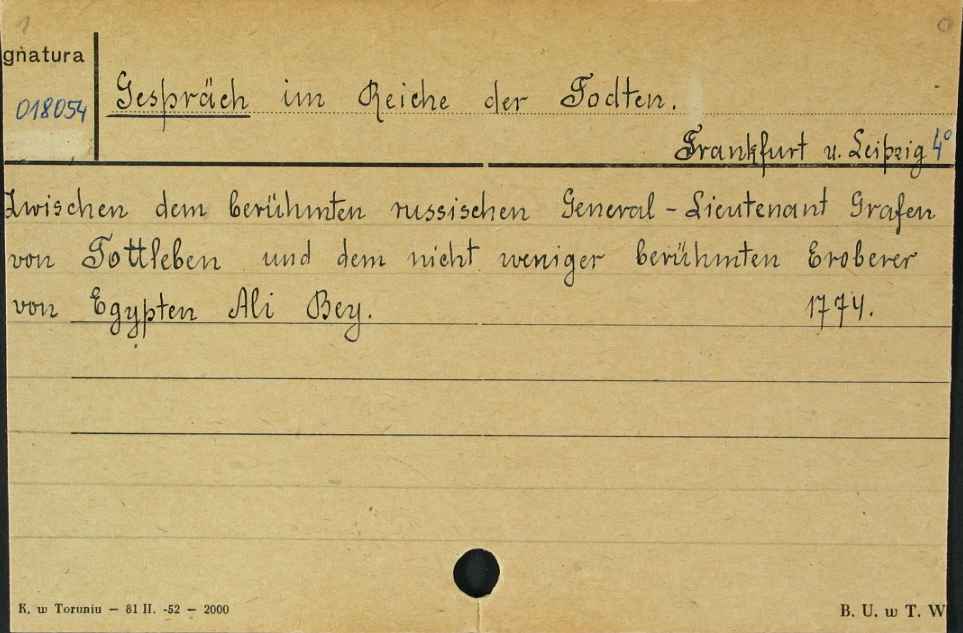 gnatura
018054
Gespräch im Reiche der Todten.
Frankfurt u. Leipzig 4°
Zwischen dem berühmten russischen General-Lieutenant Grafen
von Tottleben und dem nicht weniger berühmten Eroberer
von Egypten Ali Bey. 1774.
K. w Toruniu — 81 II. -52 — 2000
B. U. w T. W